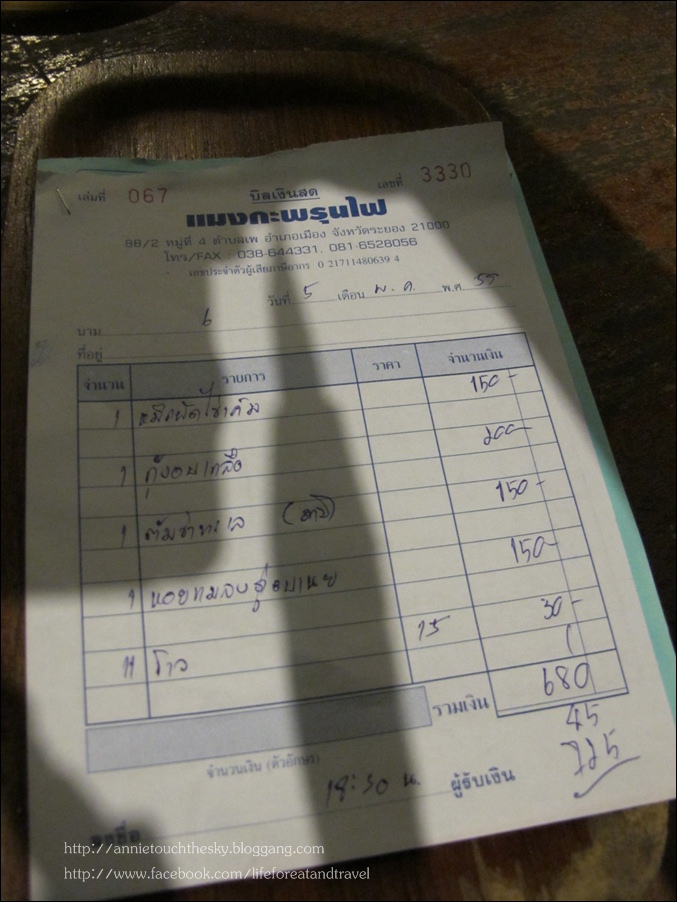 เล่มที่ 067 บิลเงินสด เลขที่ 3330
แมงกะพรุนไฟ
88/2 หมู่ที่ 4 ตำบลเพ อำเภอเมือง จังหวัดระยอง 21000
โทร/FAX : 038-644331, 081-6528056
เลขประจำตัวผู้เสียภาษีอากร 0 21711480639 4
วันที่ 5 เดือน พ.ค. พ.ศ. 55
นาม 6
ที่อยู่
จำนวน รายการ ราคา จำนวนเงิน
1 หมึกผัดไข่เค็ม 150-
1 กุ้งอบเกลือ 200-
1 ต้มยำทะเล 150-
1 150-
โถว 15 30-
รวมเงิน 680
45
725
จำนวนเงิน (ตัวอักษร)
18:30 น. ผู้รับเงิน
ลงชื่อ
http://annietouchthesky.bloggang.com
http://www.facebook.com/lifeforeatandtravel